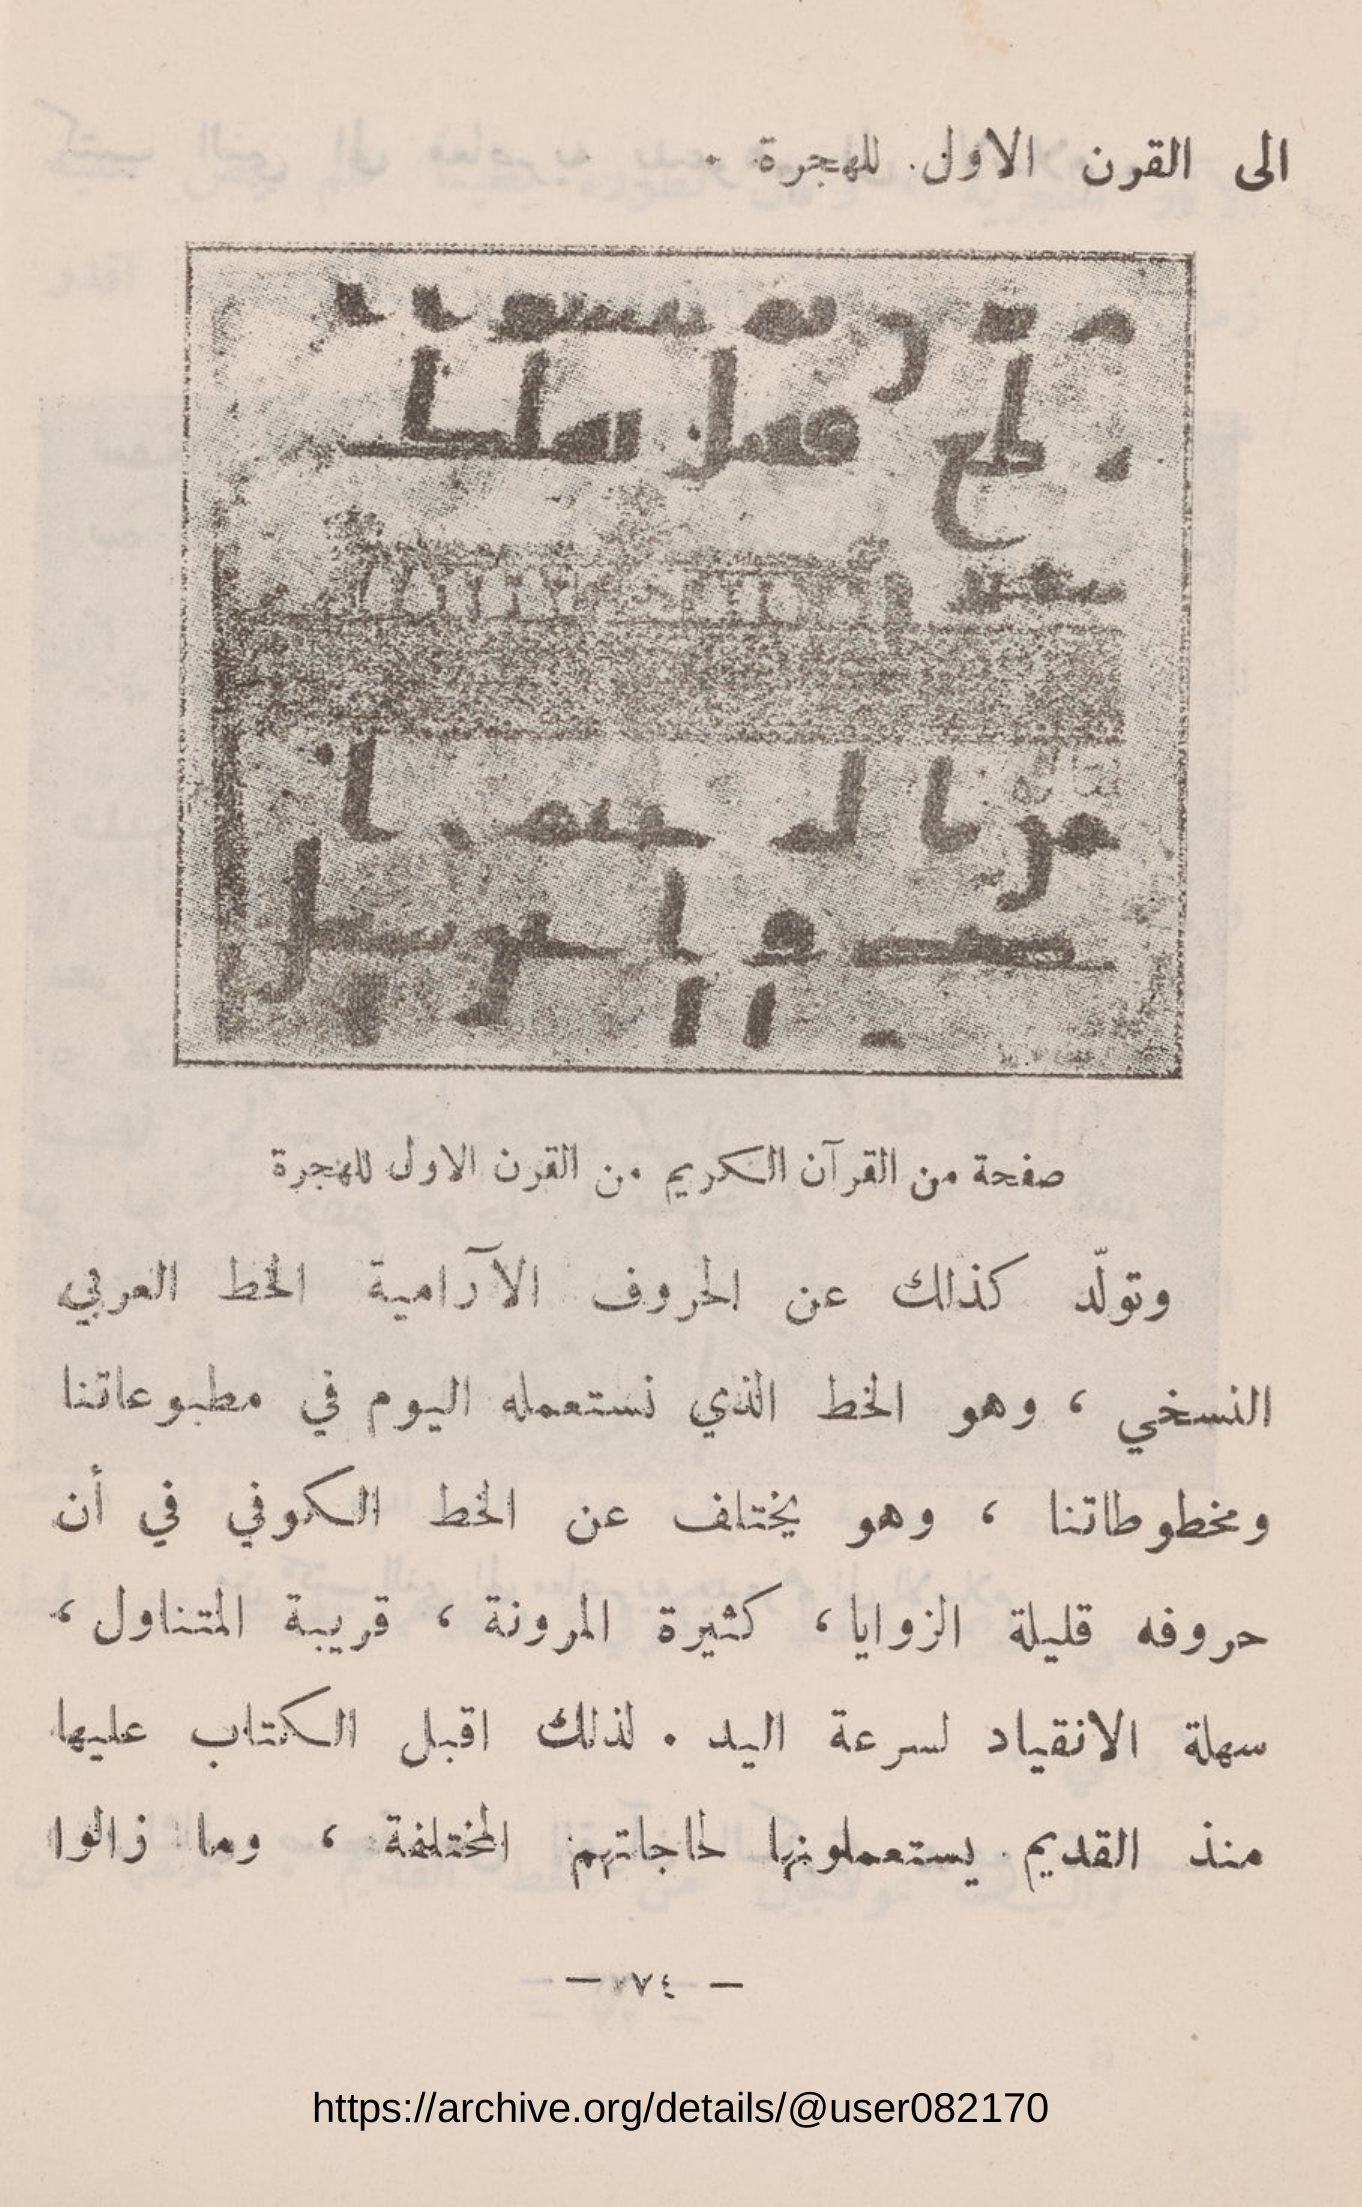 الى القرن الاول للهجرة .
صفحة من القرآن الكريم من القرن الاول للهجرة
وتولّد كذلك عن الحروف الآرامية الخط العربي
النسخي ، وهو الخط الذي نستعمله اليوم في مطبوعاتنا
ومخطوطاتنا ، وهو يختلف عن الخط الكوفي في أن
حروفه قليلة الزوايا ، كثيرة المرونة ، قريبة المتناول ،
سهلة الانقياد لسرعة اليد . لذلك اقبل الكتاب عليها
منذ القديم يستعملونها لحاجاتهم المختلفة ، وما زالوا
— ٧٤ —
https://archive.org/details/@user082170